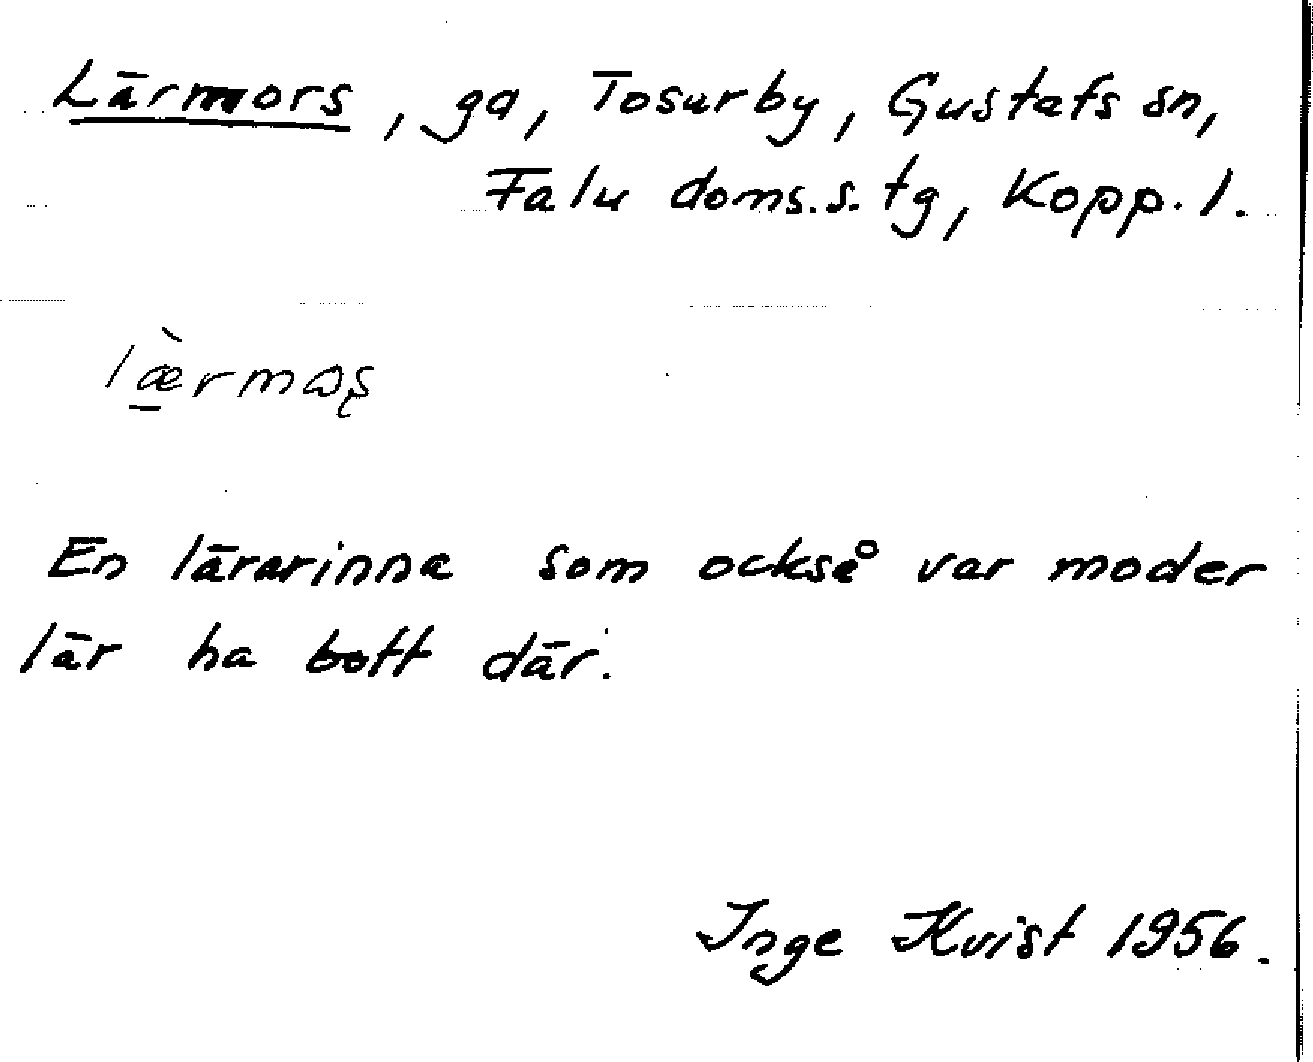 Lärmors, ga, Tosarby, Gustafs sn,
Falu doms.s. tg, Kopp. l.
En lärarinna som också var moder
lär ha bott där.
Inge Kvist 1956.